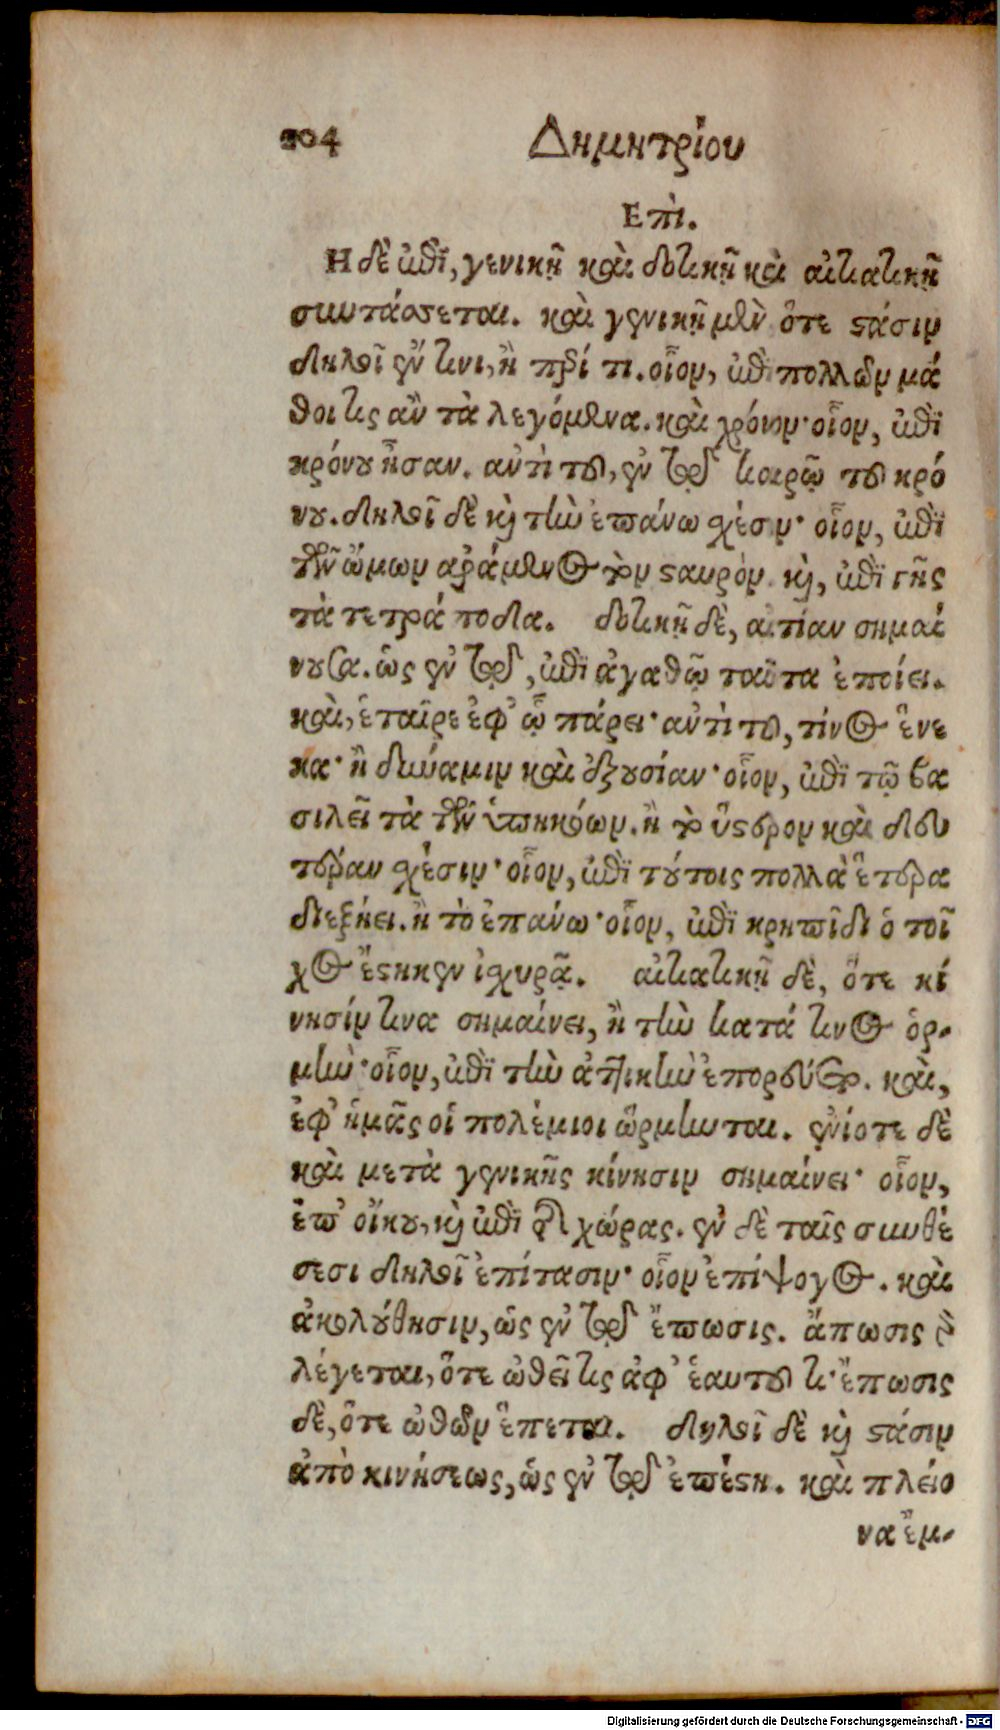 204 Δημητρίου
Επὶ.
Η δὲ ἐπὶ, γενικῇ καὶ δοτικῇ καὶ αἰτιατικῇ
συντάσσεται. καὶ γενικῇ μὲν ὅτε στάσιν
δηλοῖ ἔν τινι, ἢ περί τι. οἷον, ἐπὶ πολλῶν μά
θοι τις ἂν τὰ λεγόμενα. καὶ χρόνον· οἷον, ἐπὶ
κρόνου ἦσαν. αὐτὶ τοῦ, ἐν τῷ καιρῷ τοῦ κρό
νου. δηλοῖ δὲ καὶ τὴν ἐπάνω χέσιν· οἷον, ἐπὶ
τῶν ὤμων αράμενος τὸν σταυρόν. καὶ, ἐπὶ γῆς
τὰ τετράποδα. δοτικῇ δὲ, αἰτίαν σημαί
νουσα. ὡς ἐν τῷ, ἐπὶ ἀγαθῷ ταῦτα ἐποίει.
καὶ, ἑταῖρε ἐφ' ᾧ πάρει· αὐτὶ τοῦ, τίνος ἕνε
κα· ἢ δύναμιν καὶ ἐξουσίαν· οἷον, ἐπὶ τῷ βα
σιλεῖ τὰ τῶν ὑπηκόων. ἢ τὸ ὕστερον καὶ δευ
τέραν χέσιν· οἷον, ἐπὶ τούτοις πολλὰ ἕτερα
διεξῄει. ἢ τὸ ἐπάνω· οἷον, ἐπὶ κρηπῖδι ὁ τοῖ
χος ἕστηκεν ἰχυρᾷ. αἰτιατικῇ δὲ, ὅτε κί
νησίν τινα σημαίνει, ἢ τὴν κατά τινος ὁρ-
μὴν· οἷον, ἐπὶ τὴν ἀττικὴν ἐπορεύετο. καὶ,
ἐφ' ἡμᾶς οἱ πολέμιοι ὥρμηνται. ἐνίοτε δὲ
καὶ μετὰ γενικῆς κίνησιν σημαίνει· οἷον,
ἐπ' οἴκου, καὶ ἐπὶ τῆς χώρας. ἐν δὲ ταῖς συνθέ
σεσι δηλοῖ ἐπίτασιν· οἷον ἐπίψογος. καὶ
ἀκολούθησιν, ὡς ἐν τῷ ἔπωσις. ἄπωσις δὲ
λέγεται, ὅτε ὠθεῖ τις ἀφ' ἑαυτοῦ τι· ἔπωσις
δὲ, ὅτε ὠθῶν ἕπεται. δηλοῖ δὲ καὶ στάσιν
ἀπὸ κινήσεως, ὡς ἐν τῷ ἐπέστη. καὶ πλείο
να ἐμ-
Digitalisierung gefördert durch die Deutsche Forschungsgemeinschaft - DFG